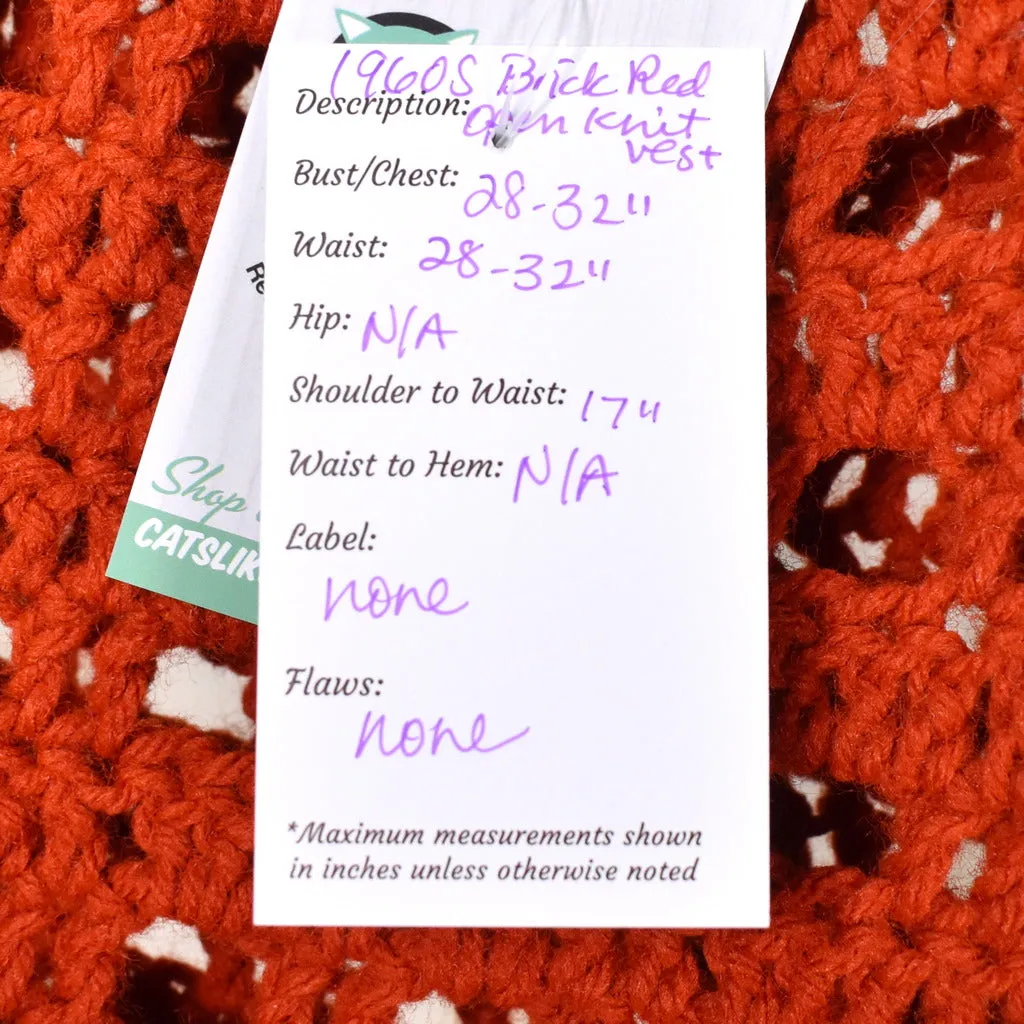 1960s Brick Red
Description: open knit
vest
Bust/Chest: 28-32"
Waist: 28-32"
Hip: N/A
Shoulder to Waist: 17"
Waist to Hem: N/A
Label:
none
Flaws:
none
*Maximum measurements shown
in inches unless otherwise noted
Shop
CATSLIK